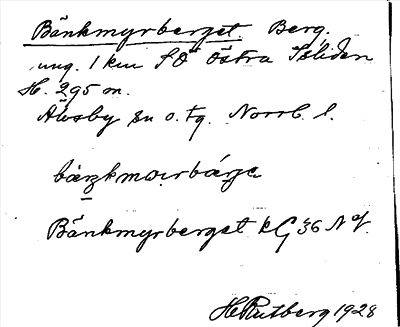 Bänkmyrberget. Berg.
ung. 1 km SO Östra Isliden
H. 295 m.
Älvsby sn o. tg. Norrb. l.
Bänkmyrberget kG 36 NV.
H Rutberg 1928